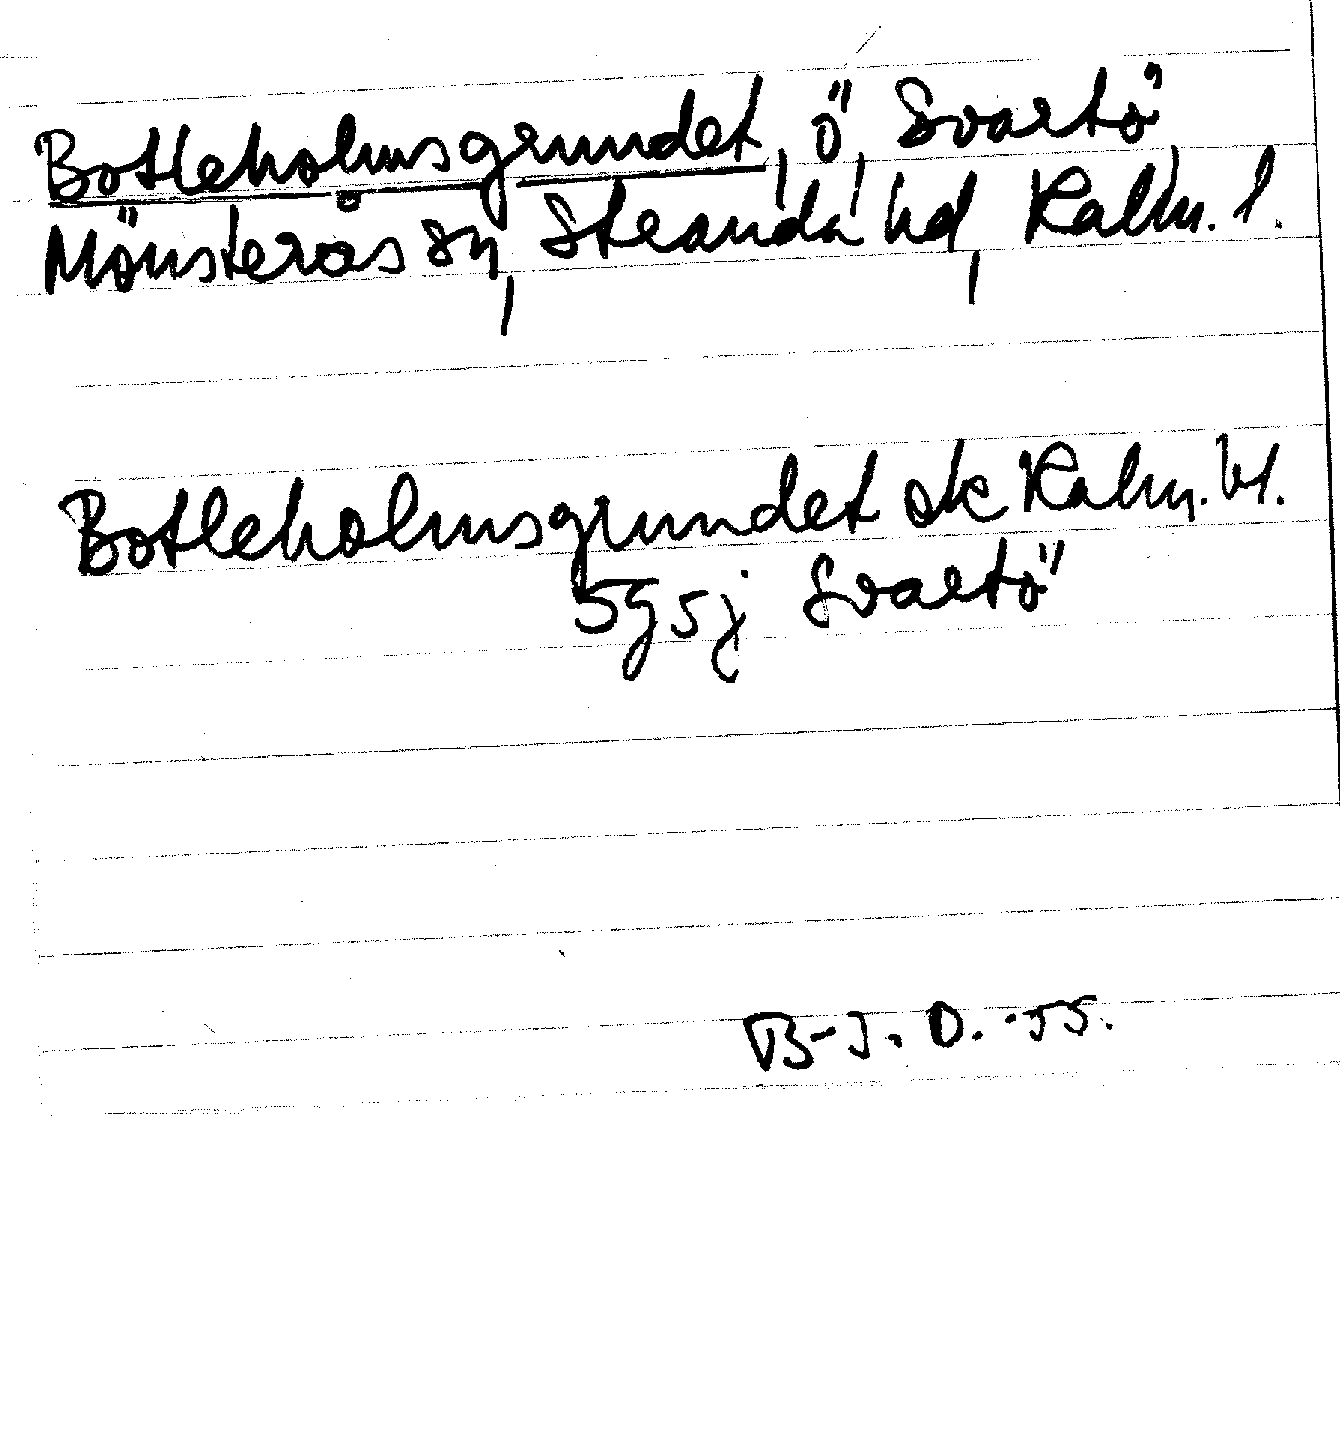 Botleholmsgrundet, ö, Svartö
Mönsterås sn, Stranda hd, Kalm. l.
Botleholmsgrundet ek Kalm. bl.
5g5j Svartö
B-J. O. -55.